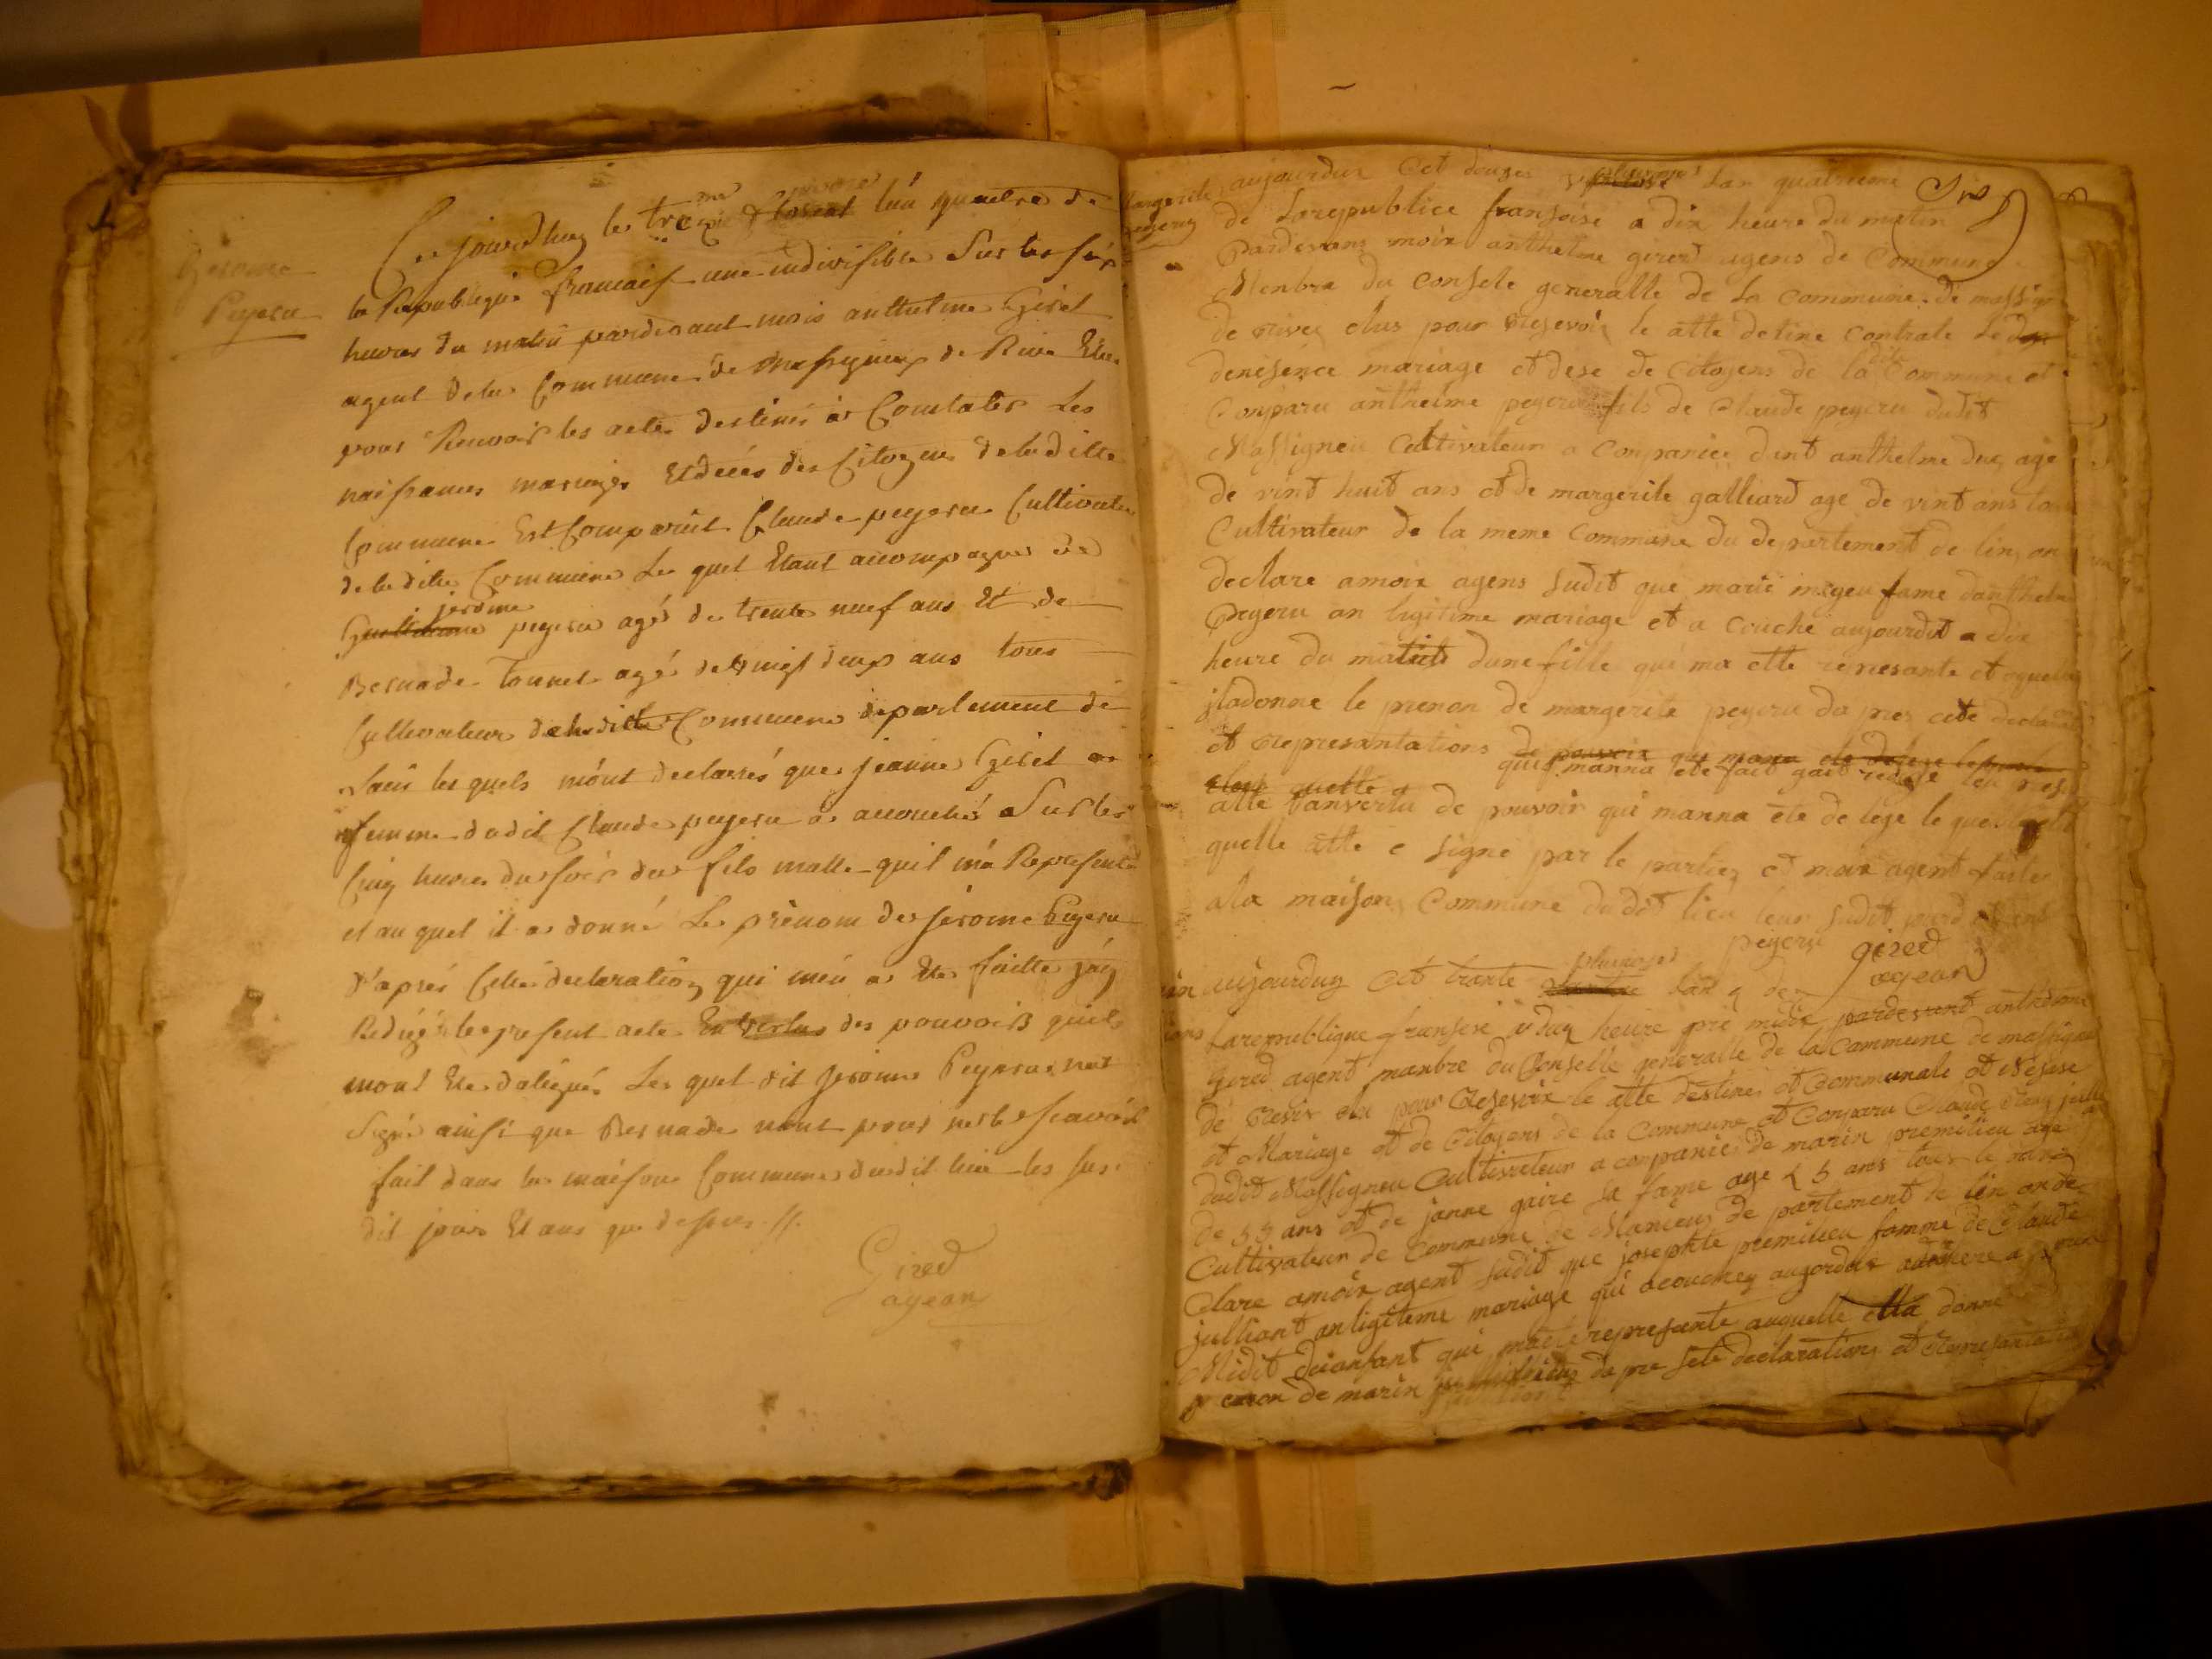 Gerome
Peyeru
Ce jourdhuy le treziéme nivoses lan quatre de
la Republique francaise une indivisible Sur les six
heures du matin pardevant mois anthelme Giret
agent de la Commune de Massigneux de Rive Elu
pour Recevoir les acte destinés a Constater les
naissances mariages Et deces des Citoyens de la ditte
Commune Est Comparut Claude peyeru Cultivateur
de la ditte Commune Le quel Etant accompagnés de
jerome
peyeru agés de trente neuf ans Et de
Bernade tonnet agé de vingt deux ans tous
Cultivateur de la ditte Commune departement de
Lain les quels mônt declarés que jeanne Giret
femme dudit Claude peyeru a accouchés Sur les
Cinq heures du soir du fils malle quil ma Representé
et au quel il a donné Le prénom de jerome Peyeru
d'aprés Cette declaration qui mên a Ete faitte jáy
Redigé le present acte En vertus des pouvoirs quil
mont Ete daligués Le quel dit Jerome Peyeru na
Signé ainsi que Bernade nont pour ne le scavoir
fait dans la maison Commune dudit lieu les sus
dit jour Et ans que dessus //.
Gired
agean
Margerite
peyeru
aujourduy Cet douzes pluvioses Lan quatrieme
de Larepublice fransoise a dix heure du matin
Pardevans moix anthelme girerd agens de Commune
Menbre du Consele generalle de la Commune de massign
de rives elus pour resevoir le atte detine contrate le
denesence mariage et dese de Citoyens de la dite Commune et
Conparu anthelme peyeru fils de Claude peyeru dudit
Massigneu Cultivateur a Conpanier dant anthelme duc age
de vint huit ans et de margerite galliard age de vint ans tou
Cultivateur de la meme Commune du departement de lin on
declare amoix agens sudit que marie mageu fame danthelme
Peyeru an ligitime mariage et a couche aujourdut a dix
heure du matin dune fille qui ma ette represante et aquelle
jladonne le prenon de margerite peyeru da pres cete declarati
et represantations de pouvoix qui mana ete delege lequele
qui manna ete fait gait redige leu pres
atte vanvertu de pouvoir qui manna ete de lege le
quelle atte e signe par le partiez et moix agent faite
ala maison Commune dudit lieu leur sudit
peyeru gired
agean
aujourduy Cet trante pluvioses lan 4 de
Larepublique fransese a duq heure pre midix pardevand anthelme
Gired agent manbre du Conselle generalle de la Commune de massigneu
de revis elu pour resevoix le atte destine et Communale et nesese
et Mariage et de Citoyens de la Commune et Conparu Claude
dudit Massigneu Cultivateur a conpanie de marin premilieu age
de 55 ans et de janne gaire sa fame age 45 ans tous le
Cultivateur de Commune de Manieux de partement de lin on de
Clare amoix agent sudit que josephte premilieu famme de Claude
julliant an ligiteme mariage qui acouchez augordui
Midit dui anfant qui mate represante auquelle ella donne
prenon de marin da pre sete declarations et represantation